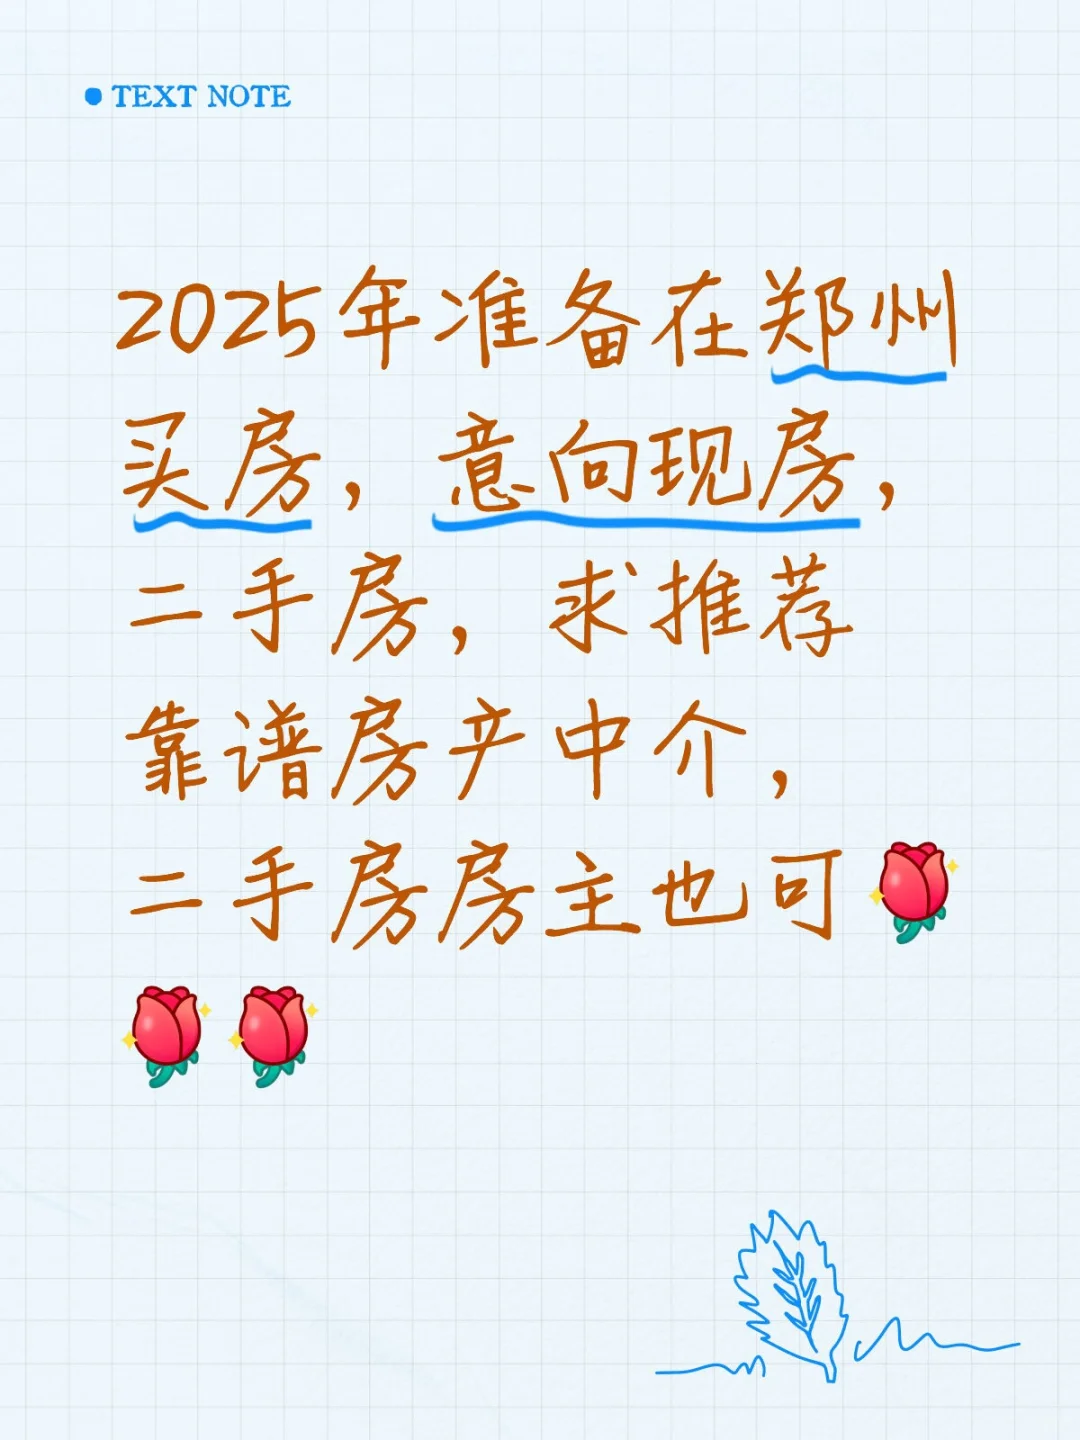 TEXT NOTE
2025年准备在郑州
买房，意向现房，
二手房，求推荐
靠谱房产中介，
二手房房主也可🌹
🌹🌹